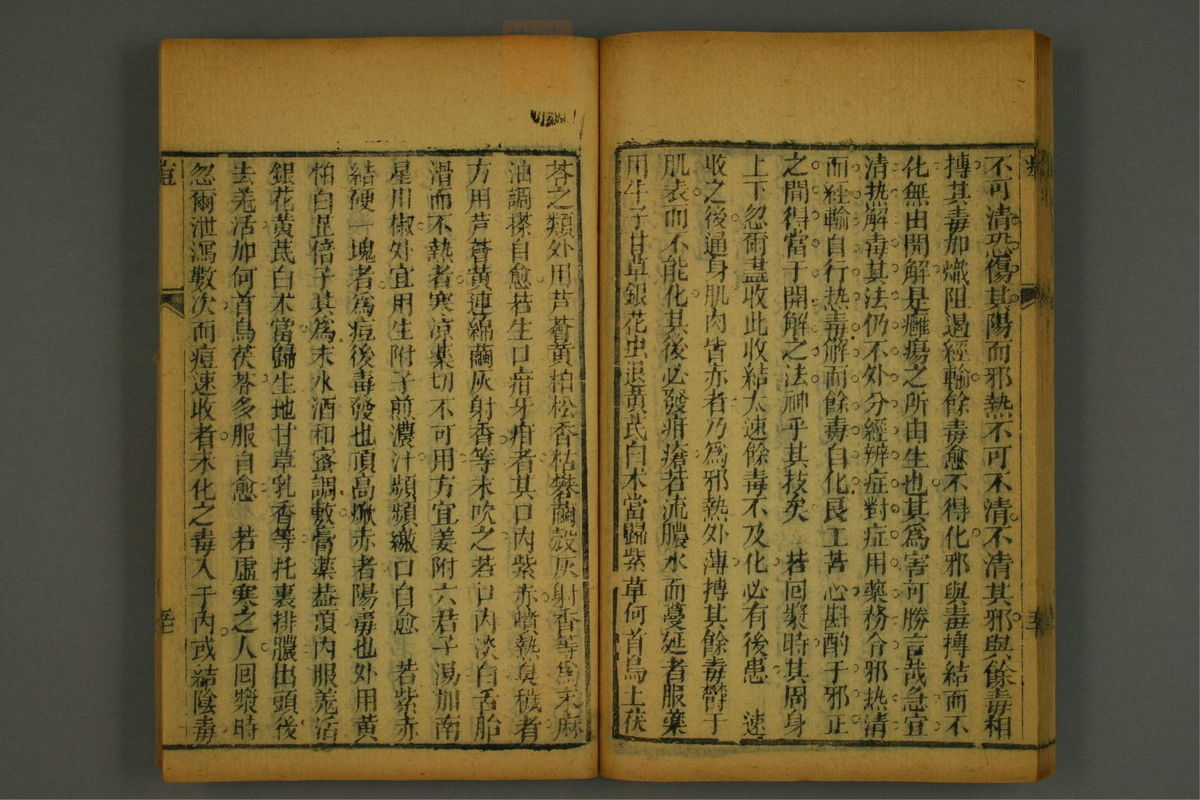 不可清恐傷其陽而邪熱不可不清不清其邪與餘毒相
摶其毒加熾阻遏經輸餘毒愈不得化邪與毒摶結而不
化無由開解是癰瘍之所由生也其為害可勝言哉急宜
清热解毒其法仍不外分經辨症對症用藥務令邪热清
而經輸自行热毒解而餘毒自化良工苦心斟酌于邪正
之間得當于開解之法神乎其技矣 若回漿時其周身
上下忽爾盡收此收結太速餘毒不及化必有後患 速
收之後遍身肌肉皆赤者乃為邪熱外薄摶其餘毒欝于
肌表而不能化其後必發疳瘡若流膿水而蔓延者服藥
用牛子甘草銀花虫退黃芪白术當歸紫草何首烏土茯
苓之類外用芦薈黄柏松香枯礬繭殻灰射香等為末麻
油調搽自愈若生口疳牙疳者其口内紫赤噴熱臭穢者
方用芦薈黄連綿繭灰射香等末吹之若口内淡白舌胎
滑而不熱者寒凉藥切不可用方宜姜附六君子湯加南
星川椒外宜用生附子煎濃汁頻頻繳口自愈 若紫赤
結硬一塊者為痘後毒發也頂高焮赤者陽毒也外用黄
柏白芷倍子其為末水酒和蜜調敷膏藥葢頂内服羗活
銀花黄芪白术當歸生地甘草乳香等托裏排膿出頭後
去羗活加何首烏茯苓多服自愈 若虛寒之人回漿時
忽爾泄瀉數次而痘速收者未化之毒入于内或結陰毒